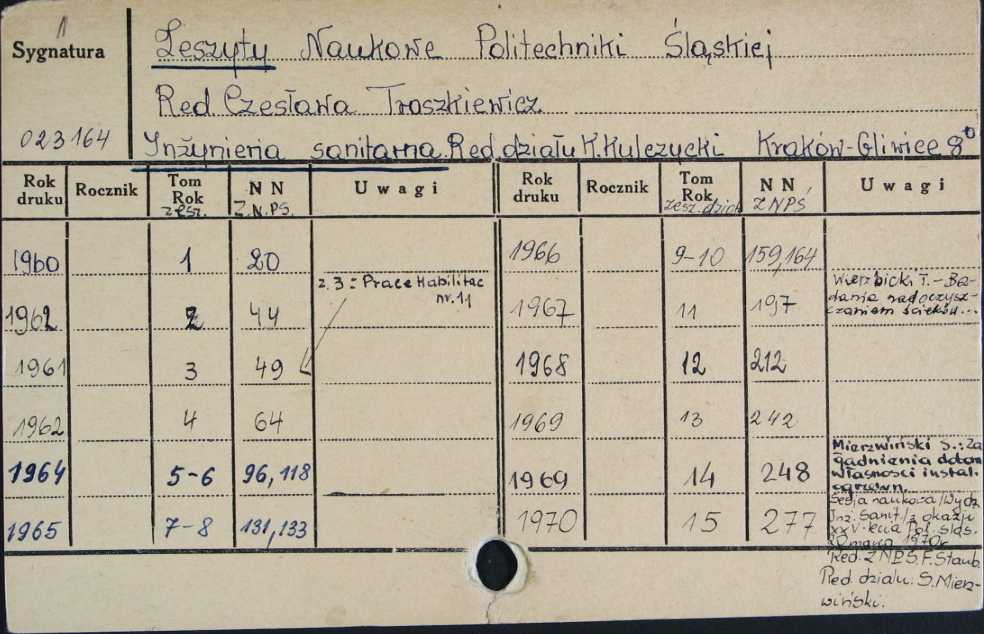 Sygnatura
023164
Zeszyty Naukowe Politechniki Śląskiej
Red Czesława Troszkiewicz
Inżynieria sanitarna. Red działu K. Kulczycki Kraków-Gliwice 8°
Rok druku Rocznik Tom Rok zesz. NN Z.N.P.S. Uwagi
1960 1 20
1962 2 44 z. 3 = Prace Habilitac nr. 11
1961 3 49
1962 4 64
1964 5-6 96, 118
1965 7-8 131, 133
Rok druku Rocznik Tom Rok zesz. NN ZNPŚ Uwagi
1966 9-10 159,164
1967 11 197 Wierzbicki T. - Ba-
dania nad oczysz-
czaniem ścieków...
1968 12 212
1969 13 242
1969 14 248 Mierzwiński S.: Za
gadnienia
własności instal.
ogrzewn.
1970 15 277 Sesja naukowa/Wydz
Inż. Sanit/z okazji
XXV-lecia Pol. Śląs.
20 marca 1970r
Red. ZNPŚ. F. Staub
Red. działu. S. Mierz-
wiński.